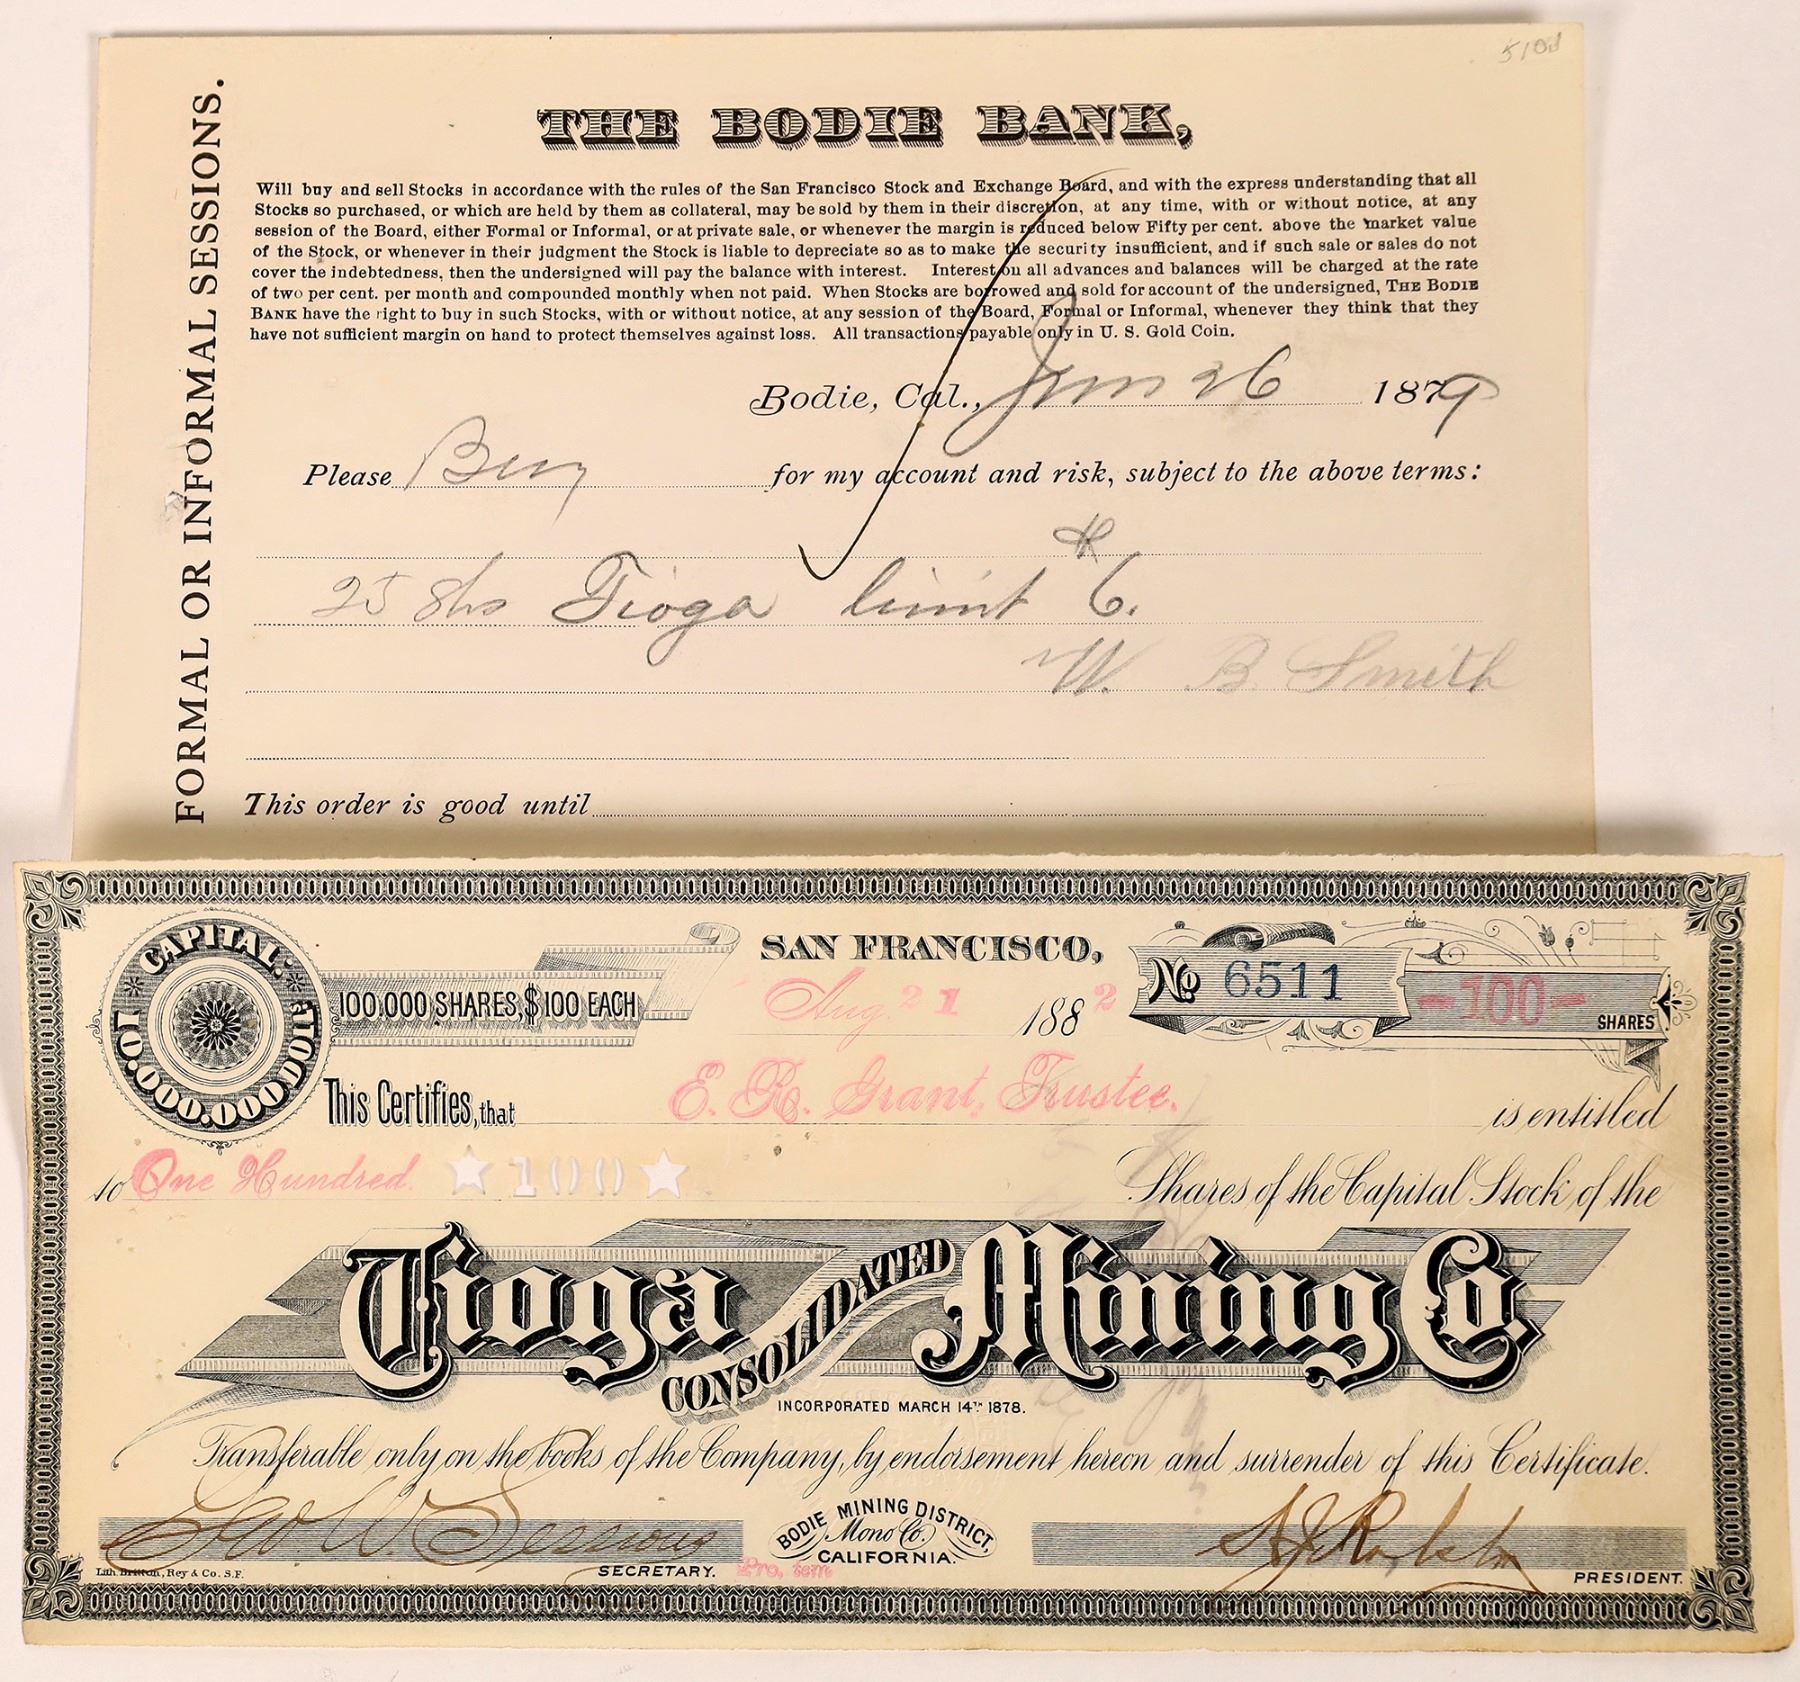 510d
FORMAL OR INFORMAL SESSIONS.
THE BODIE BANK,
Will buy and sell Stocks in accordance with the rules of the San Francisco Stock and Exchange Board, and with the express understanding that all
Stocks so purchased, or which are held by them as collateral, may be sold by them in their discretion, at any time, with or without notice, at any
session of the Board, either Formal or Informal, or at private sale, or whenever the margin is reduced below Fifty per cent. above the market value
of the Stock, or whenever in their judgment the Stock is liable to depreciate so as to make the security insufficient, and if such sale or sales do not
cover the indebtedness, then the undersigned will pay the balance with interest. Interest on all advances and balances will be charged at the rate
of two per cent. per month and compounded monthly when not paid. When Stocks are borrowed and sold for account of the undersigned, THE BODIE
BANK have the right to buy in such Stocks, with or without notice, at any session of the Board, Formal or Informal, whenever they think that they
have not sufficient margin on hand to protect themselves against loss. All transactions payable only in U. S. Gold Coin.
Bodie, Cal., 26 1879
Please Buy for my account and risk, subject to the above terms:
25 shs Tioga limit 6.
W. B. Smith
This order is good until
CAPITAL. 10.000.000 DOLLS
100.000 SHARES, $100 EACH
SAN FRANCISCO,
Aug. 21 1882
No 6511
-100- SHARES
This Certifies, that E. R. Grant, Trustee. is entitled
to One Hundred ★100★ Shares of the Capital Stock of the
Tioga CONSOLIDATED Mining Co.
INCORPORATED MARCH 14TH 1878.
Transferable only on the books of the Company, by endorsement hereon and surrender of this Certificate.
Geo. W. Sessions
SECRETARY. Pro. tem
BODIE MINING DISTRICT,
Mono Co.
CALIFORNIA.
A. J. Ralston
PRESIDENT.
Lith. Britton, Rey & Co. S.F.